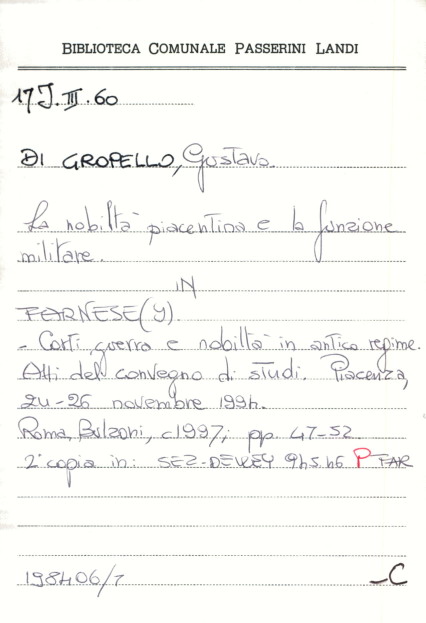 BIBLIOTECA COMUNALE PASSERINI LANDI
17 J. III. 60
DI GROPELLO, Gustavo.
La nobiltà piacentina e la funzione
militare.
IN
FARNESE (I).
- Corti, guerra e nobiltà in antico regime.
Atti del convegno di studi. Piacenza,
24-26 novembre 1994.
Roma, Bulzoni, c1997; pp. 47-52
2ª copia in: SEZ-DEWEY 945.46 P FAR
198406/1 -C